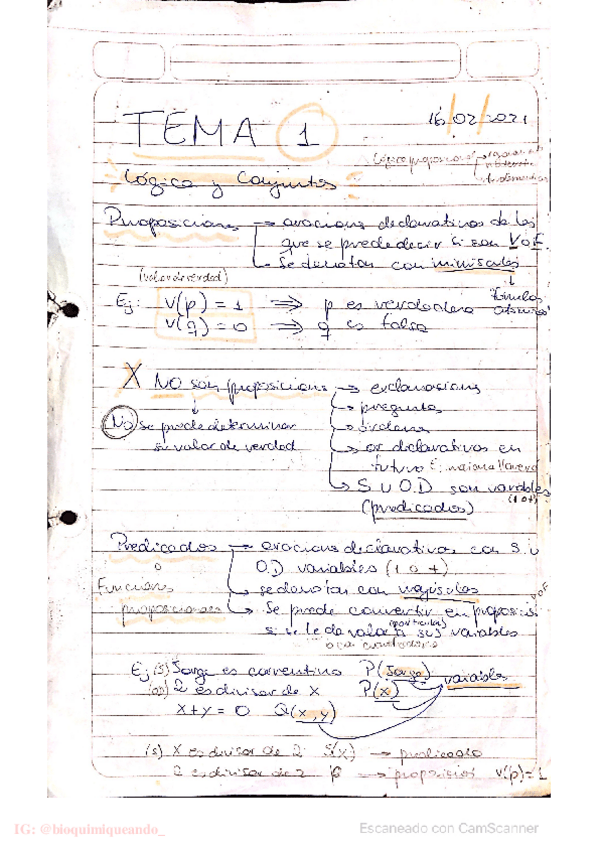 TEMA 1
16/02/2021
Lógica y Conjuntos
Proposiciones → oraciones declarativas de las
que se puede decir si son V o F.
↳ Se denotan con minúsculas
(valor de verdad)
Ej: V(p) = 1 ⇒ p es verdadera
V(q) = 0 ⇒ q es falsa
X NO son proposiciones → exclamaciones
↳ preguntas
No se puede determinar ↳ órdenes
su valor de verdad ↳ or declarativas en
futuro
↳ S u O.D son variables
(1 o +)
(predicados)
Predicados → oraciones declarativas con S. u
o O.D variables (1 o +)
Funciones ↳ se denotan con mayúsculas
proposicionales ↳ Se puede convertir en proposición
si se le da valor a sus variables
(particular)
o ca
Ej (s) Jorge es correntino P(Jorge)
variables
(OD) 2 es divisor de x P(x)
x+y = 0 Q(x,y)
(s) X es divisor de 2 S(x) → predicado
2 es divisor de 2 → proposición V(p)=1
IG: @bioquimiqueando_
Escaneado con CamScanner